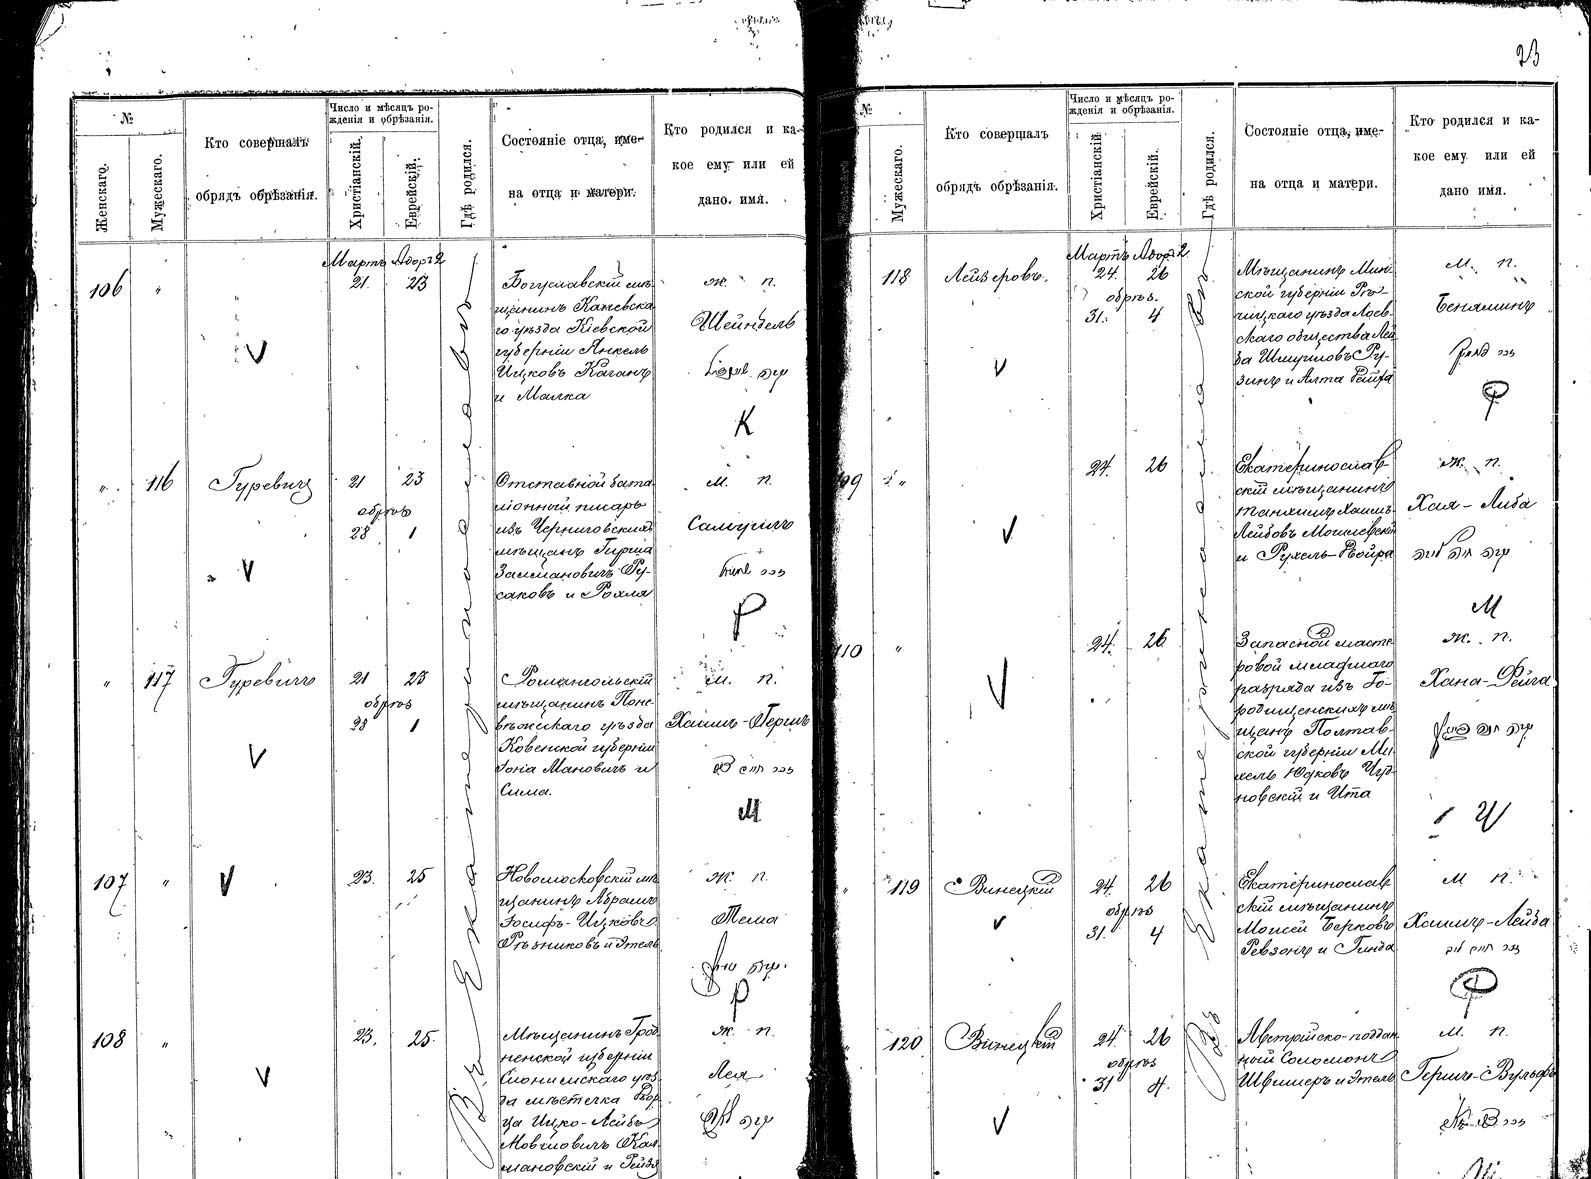 23
№
Женскаго.
Мужескаго.
Кто совершалъ
обрядъ обрѣзанія.
Число и мѣсяцъ ро-
жденія и обрѣзанія.
Христіанскій.
Еврейскій.
Гдѣ родился.
Состояніе отца, име-
на отца и матери.
Кто родился и ка-
кое ему или ей
дано имя.
Въ Екатеринославѣ
Мартъ Адоръ 2
106 " 21 23
Богуславскій мѣ-
щанинъ Каневска-
го уѣзда Кіевской
губерніи Янкель
Ицковъ Каганъ
и Малка
ж. п.
Шейндель
К
" 116 Гуревичъ 21 23
обрѣз
28 1
Отставной бата
ліонный писарь
изъ Черниговскихъ
мѣщанъ Гирша
Залмановичъ Ру-
саковъ и Рохля
м. п.
Самуилъ
שמואל זכר
Р
" 117 Гуревичъ 21 23
обрѣз
28 1
мѣщанинъ Поне-
вѣжскаго уѣзда
Ковенской губерніи
Іона Мановичъ и
Сима.
м. п.
Хаимъ-Герцъ
М
107 " 23. 25
Новомосковскій мѣ
щанинъ Абрамъ
Іосифъ-Ицковъ
Рѣзниковъ и Этель
ж. п.
Тема
Р
108 " 23. 25.
Мѣщанинъ Грод
ненской губерніи
Слонимскаго уѣз
да мѣстечка Двор
ца Ицко-Лейбъ
Мовшовичъ Кал-
мановскій и Рейзя
ж. п.
Лея
לאה נקבה
№
Мужескаго.
Кто совершалъ
обрядъ обрѣзанія.
Число и мѣсяцъ ро-
жденія и обрѣзанія.
Христіанскій.
Еврейскій.
Гдѣ родился.
Состояніе отца, име-
на отца и матери.
Кто родился и ка-
кое ему или ей
дано имя.
Въ Екатеринославѣ
Мартъ Адоръ 2
118 Лейзеровъ. 24. 26
обрѣз.
31. 4
Мѣщанинъ Мин-
ской губерніи Рѣ-
чицкаго уѣзда Лоев-
скаго общества Лей
ба Шмуиловъ Ру-
зинъ и Алта Фейга
м. п.
Беняминъ
Р
109 " 24. 26
Екатеринослав
скій мѣщанинъ
Танхимъ Хаимъ
Лейбовъ Могилевскій
и Рухель-Двойра
ж. п.
Хая-Либа
М
110 " 24. 26
Запасной масте-
ровой младшаго
разряда изъ Го-
родищенскихъ мѣ
щанъ Полтав-
ской губерніи Ми-
хель Юдковъ Чуд-
новскій и Ита
ж. п.
Хана-Фейга
Ч
" 119 Винецкій 24. 26
обрѣз
31. 4
Екатеринослав
скій мѣщанинъ
Моисей Берковъ
Ревзонъ и Гинда
м. п.
Хаимъ-Лейба
Р
" 120 Винецкій 24 26
обрѣз
31 4.
Австрійско-поддан
ный Соломонъ
Швимеръ и Этель
м. п.
Гершъ-Вульфъ